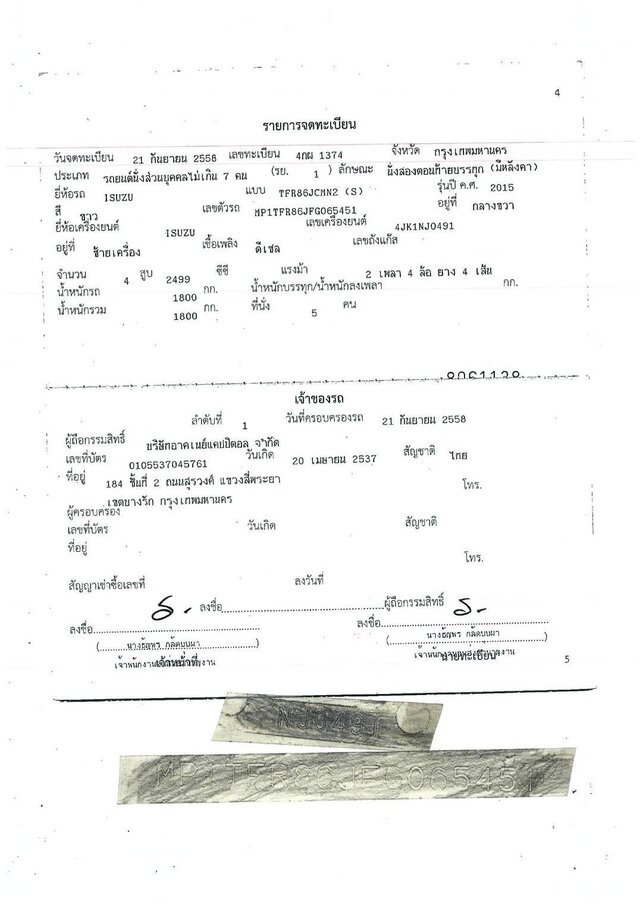 4
รายการจดทะเบียน
วันจดทะเบียน 21 กันยายน 2558 เลขทะเบียน 4กผ 1374 จังหวัด กรุงเทพมหานคร
ประเภท รถยนต์นั่งส่วนบุคคลไม่เกิน 7 คน (รย. 1 ) ลักษณะ นั่งสองตอนท้ายบรรทุก (มีหลังคา)
ยี่ห้อรถ ISUZU แบบ TFR86JCMN2 (S) รุ่นปี ค.ศ. 2015
สี ขาว เลขตัวรถ MP1TFR86JFG065451 อยู่ที่ กลางขวา
ยี่ห้อเครื่องยนต์ ISUZU เลขเครื่องยนต์ 4JK1NJ0491
อยู่ที่ ซ้ายเครื่อง เชื้อเพลิง ดีเซล เลขถังแก๊ส
จำนวน 4 สูบ 2499 ซีซี แรงม้า 2 เพลา 4 ล้อ ยาง 4 เส้น
น้ำหนักรถ 1800 กก. น้ำหนักบรรทุก/น้ำหนักลงเพลา กก.
น้ำหนักรวม 1800 กก. ที่นั่ง 5 คน
เจ้าของรถ
ลำดับที่ 1 วันที่ครอบครองรถ 21 กันยายน 2558
ผู้ถือกรรมสิทธิ์ บริษัทอาคเนย์แคปปิตอล จำกัด
เลขที่บัตร 0105537045761 วันเกิด 20 เมษายน 2537 สัญชาติ ไทย
ที่อยู่ 184 ชั้นที่ 2 ถนนสุรวงศ์ แขวงสี่พระยา โทร.
เขตบางรัก กรุงเทพมหานคร
ผู้ครอบครอง
เลขที่บัตร วันเกิด สัญชาติ
ที่อยู่
โทร.
สัญญาเช่าซื้อเลขที่ ลงวันที่
ลงชื่อ ผู้ถือกรรมสิทธิ์
ลงชื่อ ลงชื่อ
(นางธัญพร กลัดบุบผา) (นางธัญพร กลัดบุบผา)
เจ้าหน้าที่ นายทะเบียน
5
NJ0491
MP1TFR86JFG065451